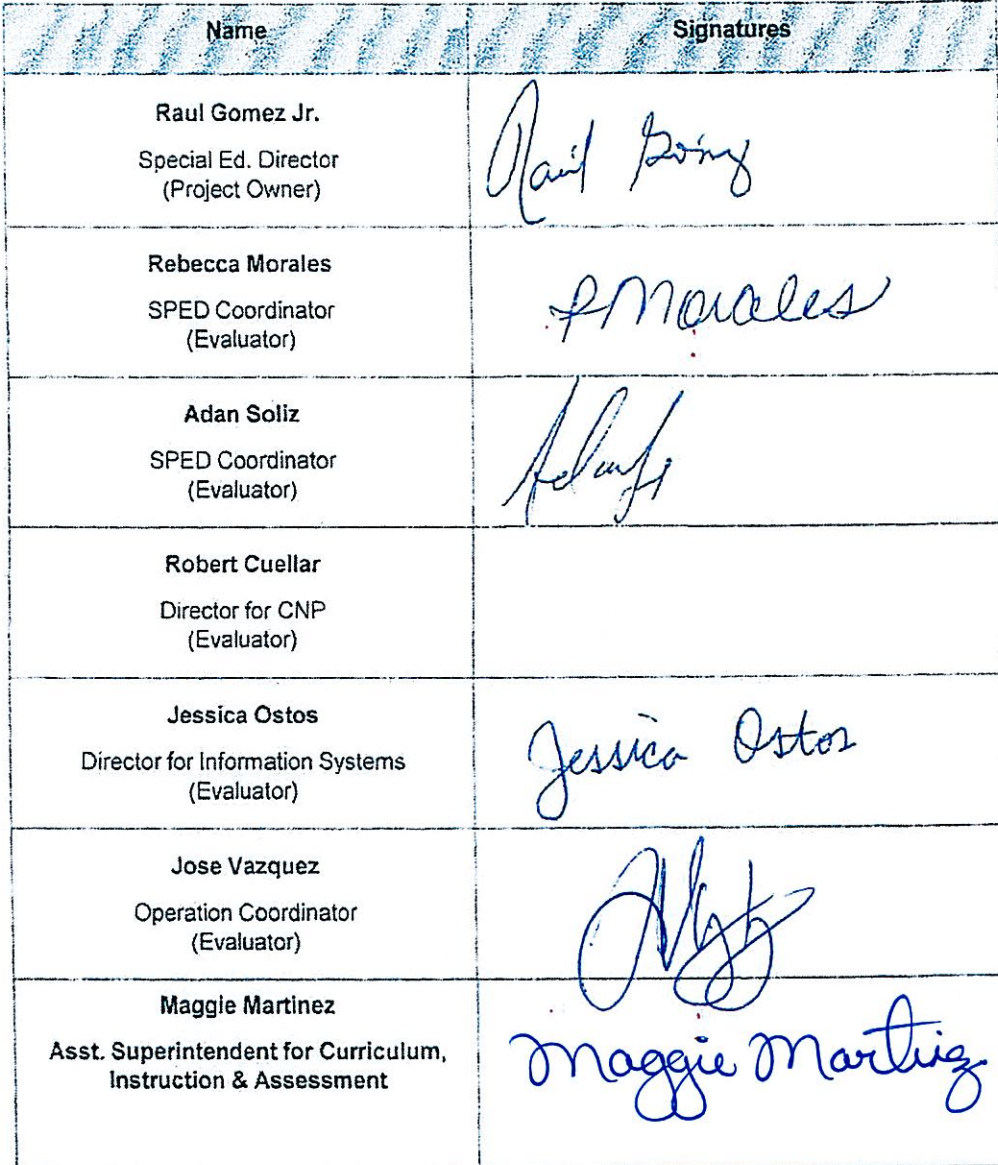 Name
Signatures
Raul Gomez Jr.
Special Ed. Director
(Project Owner)
Raul Gomez
Rebecca Morales
SPED Coordinator
(Evaluator)
RMorales
Adan Soliz
SPED Coordinator
(Evaluator)
Robert Cuellar
Director for CNP
(Evaluator)
Jessica Ostos
Director for Information Systems
(Evaluator)
Jessica Ostos
Jose Vazquez
Operation Coordinator
(Evaluator)
Maggie Martinez
Asst. Superintendent for Curriculum,
Instruction & Assessment
Maggie Martinez